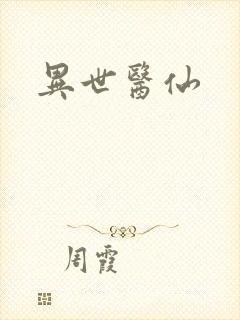 異世醫仙
周霞